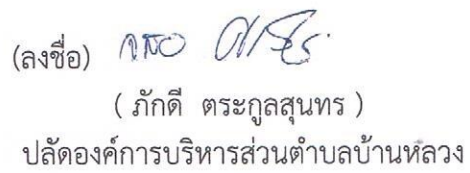 (ลงชื่อ)
( ภักดี ตระกูลสุนทร )
ปลัดองค์การบริหารส่วนตำบลบ้านหลวง